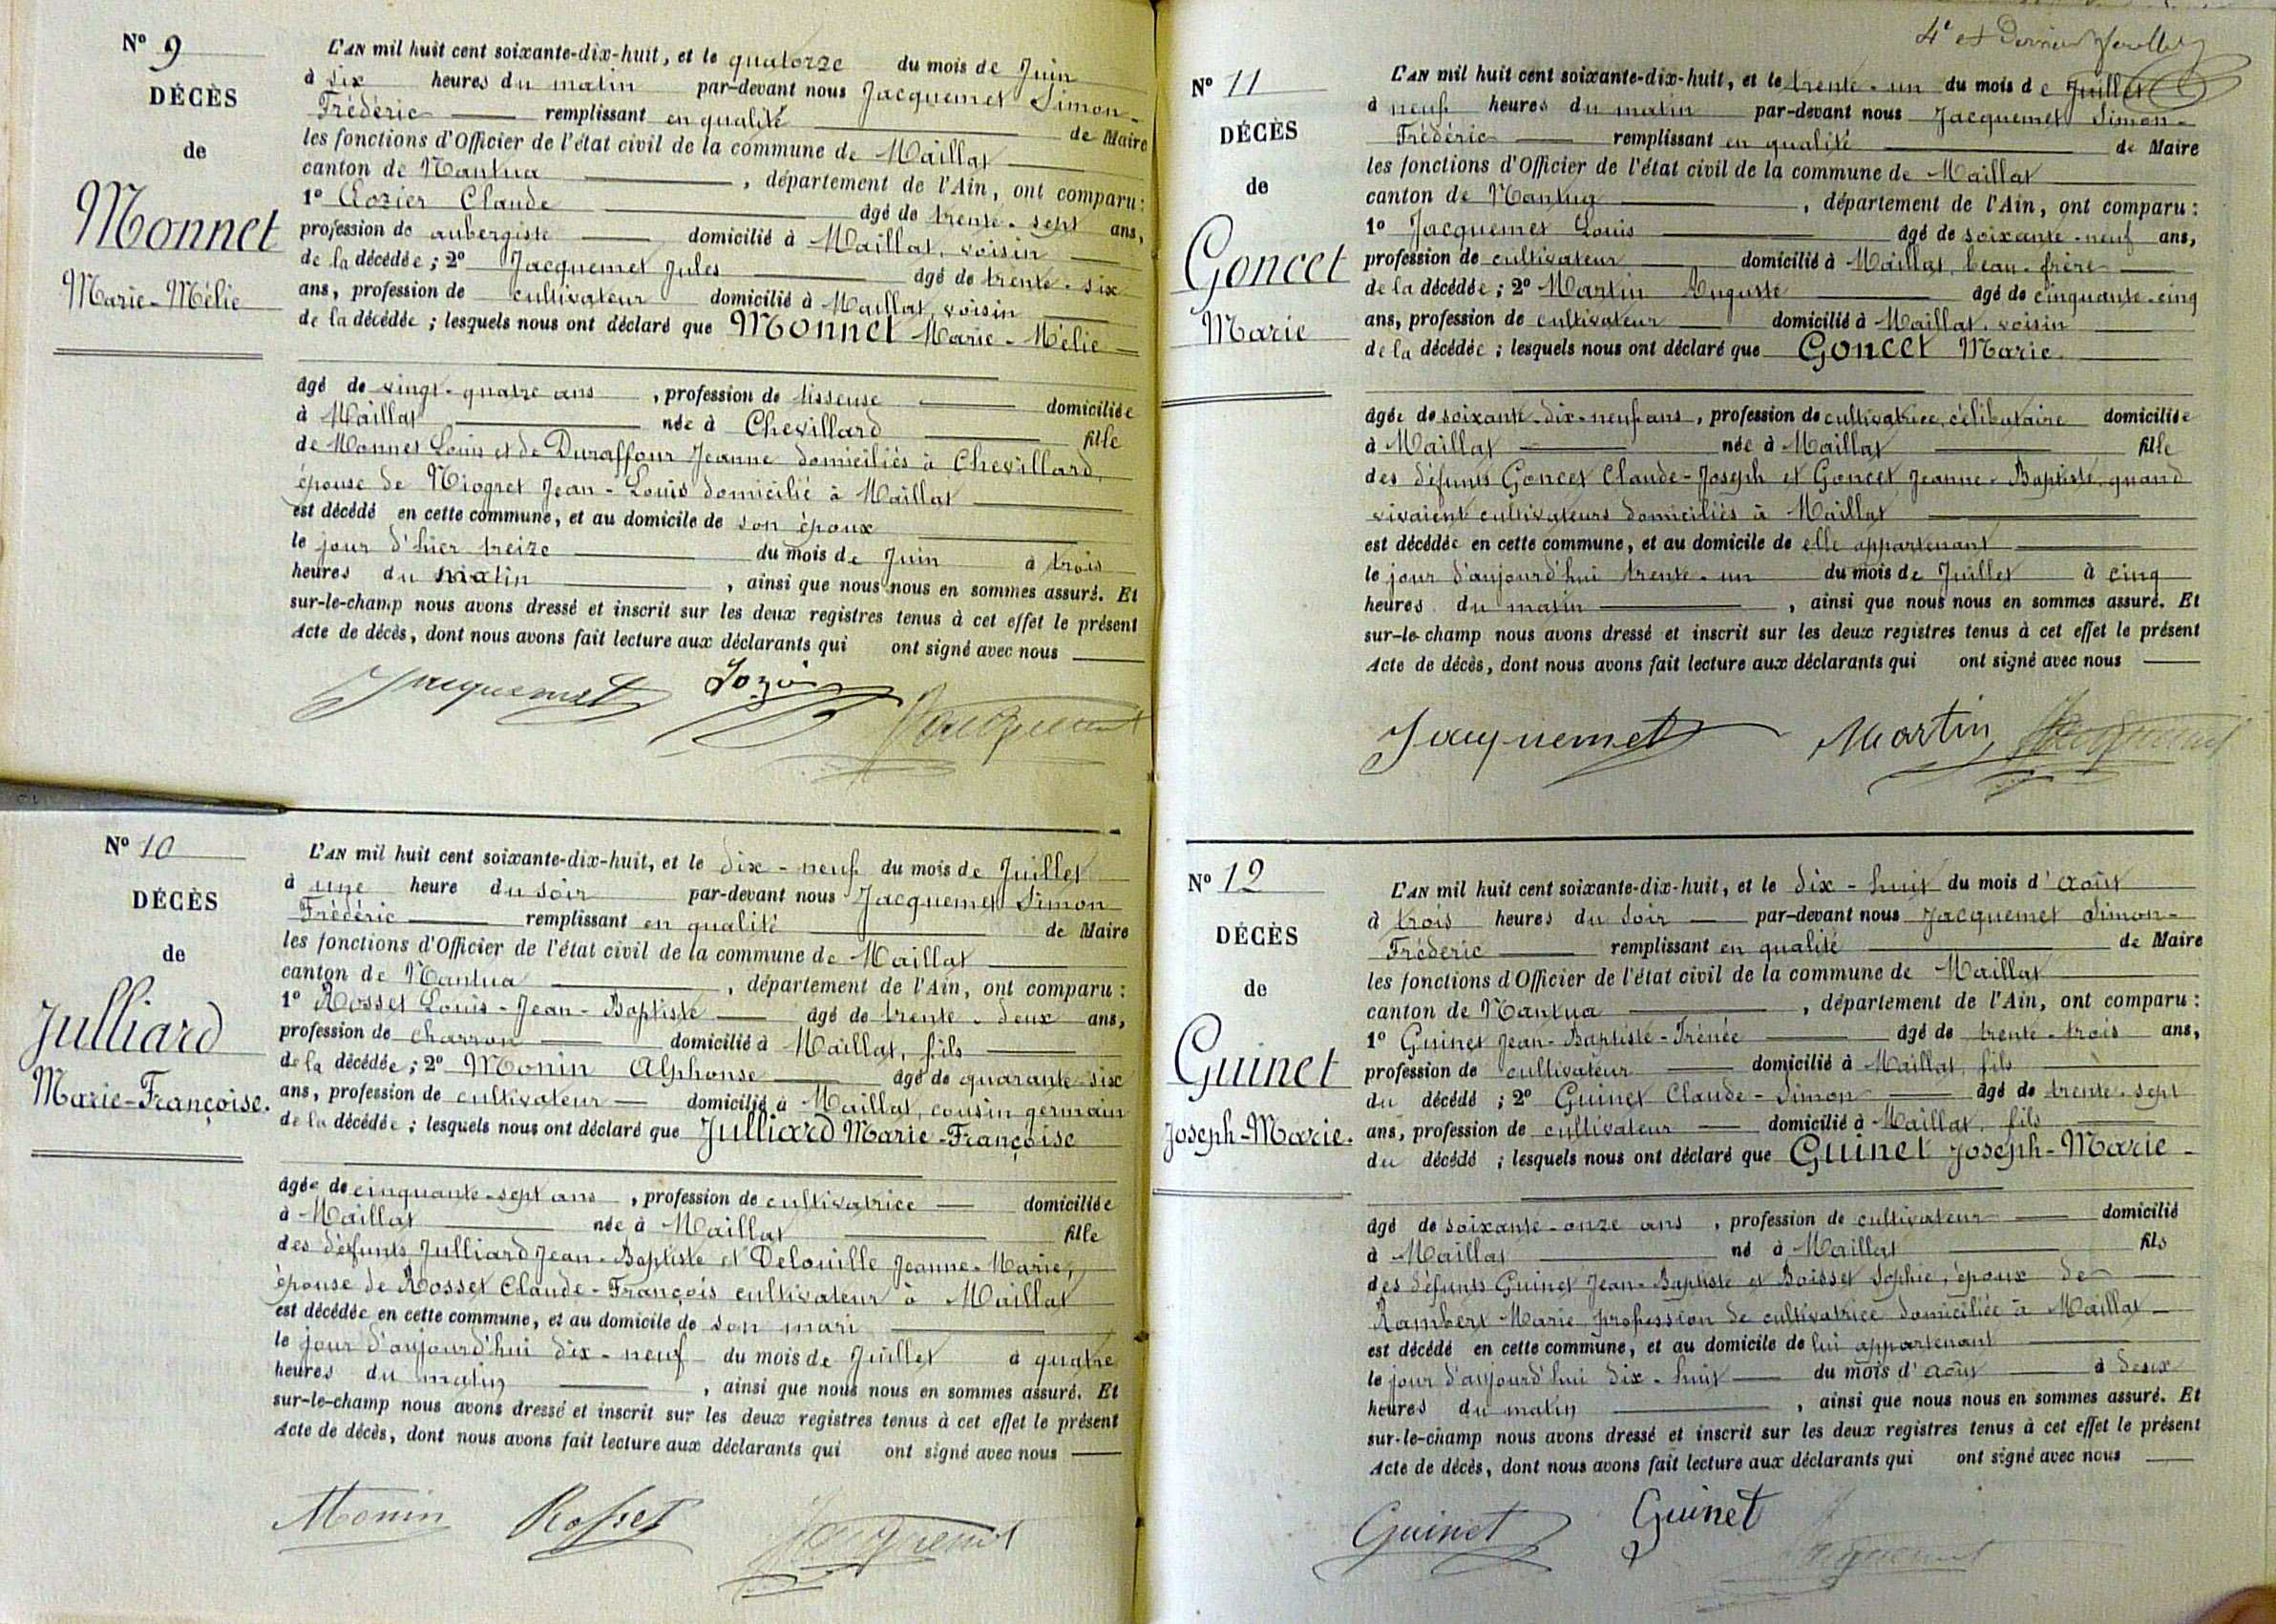 Nº 9
DÉCÈS
de
Monnet
Marie-Mélie
L'AN mil huit cent soixante-dix-huit, et le quatorze du mois de Juin
à six heures du matin par-devant nous Jacquemet Simon-
Frédéric remplissant en qualité de Maire
les fonctions d'Officier de l'état civil de la commune de Maillat
canton de Nantua, département de l'Ain, ont comparu:
1º Lozier Claude âgé de trente-sept ans,
profession de aubergiste domicilié à Maillat, voisin
de la décédée; 2º Jacquemet Jules âgé de trente-six
ans, profession de cultivateur domicilié à Maillat, voisin
de la décédée; lesquels nous ont déclaré que Monnet Marie-Mélie
âgé de vingt-quatre ans, profession de tisseuse domiciliée
à Maillat née à Chevillard fille
de Monnet Louis et de Duraffour Jeanne domiciliés à Chevillard,
épouse de Niogret Jean-Louis domicilié à Maillat
est décédé en cette commune, et au domicile de son époux
le jour d'hier treize du mois de Juin à trois
heures du matin, ainsi que nous nous en sommes assuré. Et
sur-le-champ nous avons dressé et inscrit sur les deux registres tenus à cet effet le présent
Acte de décès, dont nous avons fait lecture aux déclarants qui ont signé avec nous
Jacquemet Jacquemet
Nº 10
DÉCÈS
de
Julliard
Marie-Françoise.
L'AN mil huit cent soixante-dix-huit, et le dix-neuf du mois de Juillet
à une heure du soir par-devant nous Jacquemet Simon
Frédéric remplissant en qualité de Maire
les fonctions d'Officier de l'état civil de la commune de Maillat
canton de Nantua, département de l'Ain, ont comparu:
1º Rosset Louis-Jean-Baptiste âgé de trente-deux ans,
profession de charron domicilié à Maillat, fils
de la décédée; 2º Monin Alphonse âgé de quarante-six
ans, profession de cultivateur domicilié à Maillat, cousin germain
de la décédée; lesquels nous ont déclaré que Julliard Marie-Françoise
âgée de cinquante-sept ans, profession de cultivatrice domiciliée
à Maillat née à Maillat fille
des défunts Julliard Jean-Baptiste et Delouille Jeanne-Marie,
épouse de Rosset Claude-François cultivateur à Maillat
est décédée en cette commune, et au domicile de son mari
le jour d'aujourd'hui dix-neuf du mois de Juillet à quatre
heures du matin, ainsi que nous nous en sommes assuré. Et
sur-le-champ nous avons dressé et inscrit sur les deux registres tenus à cet effet le présent
Acte de décès, dont nous avons fait lecture aux déclarants qui ont signé avec nous
Monin Rosset Jacquemet
4e et Dernier feuillet
Nº 11
DÉCÈS
de
Goncet
Marie
L'AN mil huit cent soixante-dix-huit, et le trente-un du mois de Juillet
à neuf heures du matin par-devant nous Jacquemet Simon-
Frédéric remplissant en qualité de Maire
les fonctions d'Officier de l'état civil de la commune de Maillat
canton de Nantua, département de l'Ain, ont comparu:
1º Jacquemet Louis âgé de soixante-neuf ans,
profession de cultivateur domicilié à Maillat, beau-frère
de la décédée; 2º Martin Auguste âgé de cinquante-cinq
ans, profession de cultivateur domicilié à Maillat, voisin
de la décédée; lesquels nous ont déclaré que Goncet Marie
âgée de soixante-dix-neuf ans, profession de cultivatrice, célibataire domiciliée
à Maillat née à Maillat fille
des défunts Goncet Claude-Joseph et Goncet Jeanne-Baptiste, quand
vivaient cultivateurs domiciliés à Maillat
est décédée en cette commune, et au domicile de elle appartenant
le jour d'aujourd'hui trente-un du mois de Juillet à cinq
heures du matin, ainsi que nous nous en sommes assuré. Et
sur-le-champ nous avons dressé et inscrit sur les deux registres tenus à cet effet le présent
Acte de décès, dont nous avons fait lecture aux déclarants qui ont signé avec nous
Jacquemet Martin Jacquemet
Nº 12
DÉCÈS
de
Guinet
Joseph-Marie.
L'AN mil huit cent soixante-dix-huit, et le dix-huit du mois d'août
à trois heures du soir par-devant nous Jacquemet Simon-
Frédéric remplissant en qualité de Maire
les fonctions d'Officier de l'état civil de la commune de Maillat
canton de Nantua, département de l'Ain, ont comparu:
1º Guinet Jean-Baptiste-Irénée âgé de trente-trois ans,
profession de cultivateur domicilié à Maillat, fils
du décédé; 2º Guinet Claude-Simon âgé de trente-sept
ans, profession de cultivateur domicilié à Maillat, fils
du décédé; lesquels nous ont déclaré que Guinet Joseph-Marie
âgé de soixante-onze ans, profession de cultivateur domicilié
à Maillat né à Maillat fils
des défunts Guinet Jean-Baptiste et Boisset Sophie, époux de
Rambert Marie, profession de cultivatrice domiciliée à Maillat
est décédé en cette commune, et au domicile de lui appartenant
le jour d'aujourd'hui dix-huit du mois d'août à deux
heures du matin, ainsi que nous nous en sommes assuré. Et
sur-le-champ nous avons dressé et inscrit sur les deux registres tenus à cet effet le présent
Acte de décès, dont nous avons fait lecture aux déclarants qui ont signé avec nous
Guinet Guinet Jacquemet